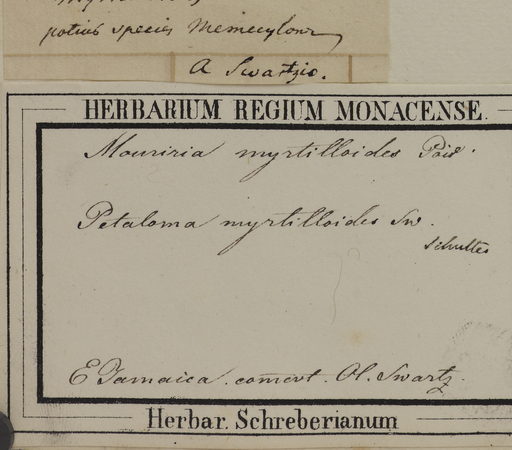 potius species Memecylonis
A Swartzio.
HERBARIUM REGIUM MONACENSE.
Mouriria myrtilloides Poir.
Petaloma myrtilloides Sw.
Schultes
E Jamaica. Ol. Swartz.
Herbar. Schreberianum